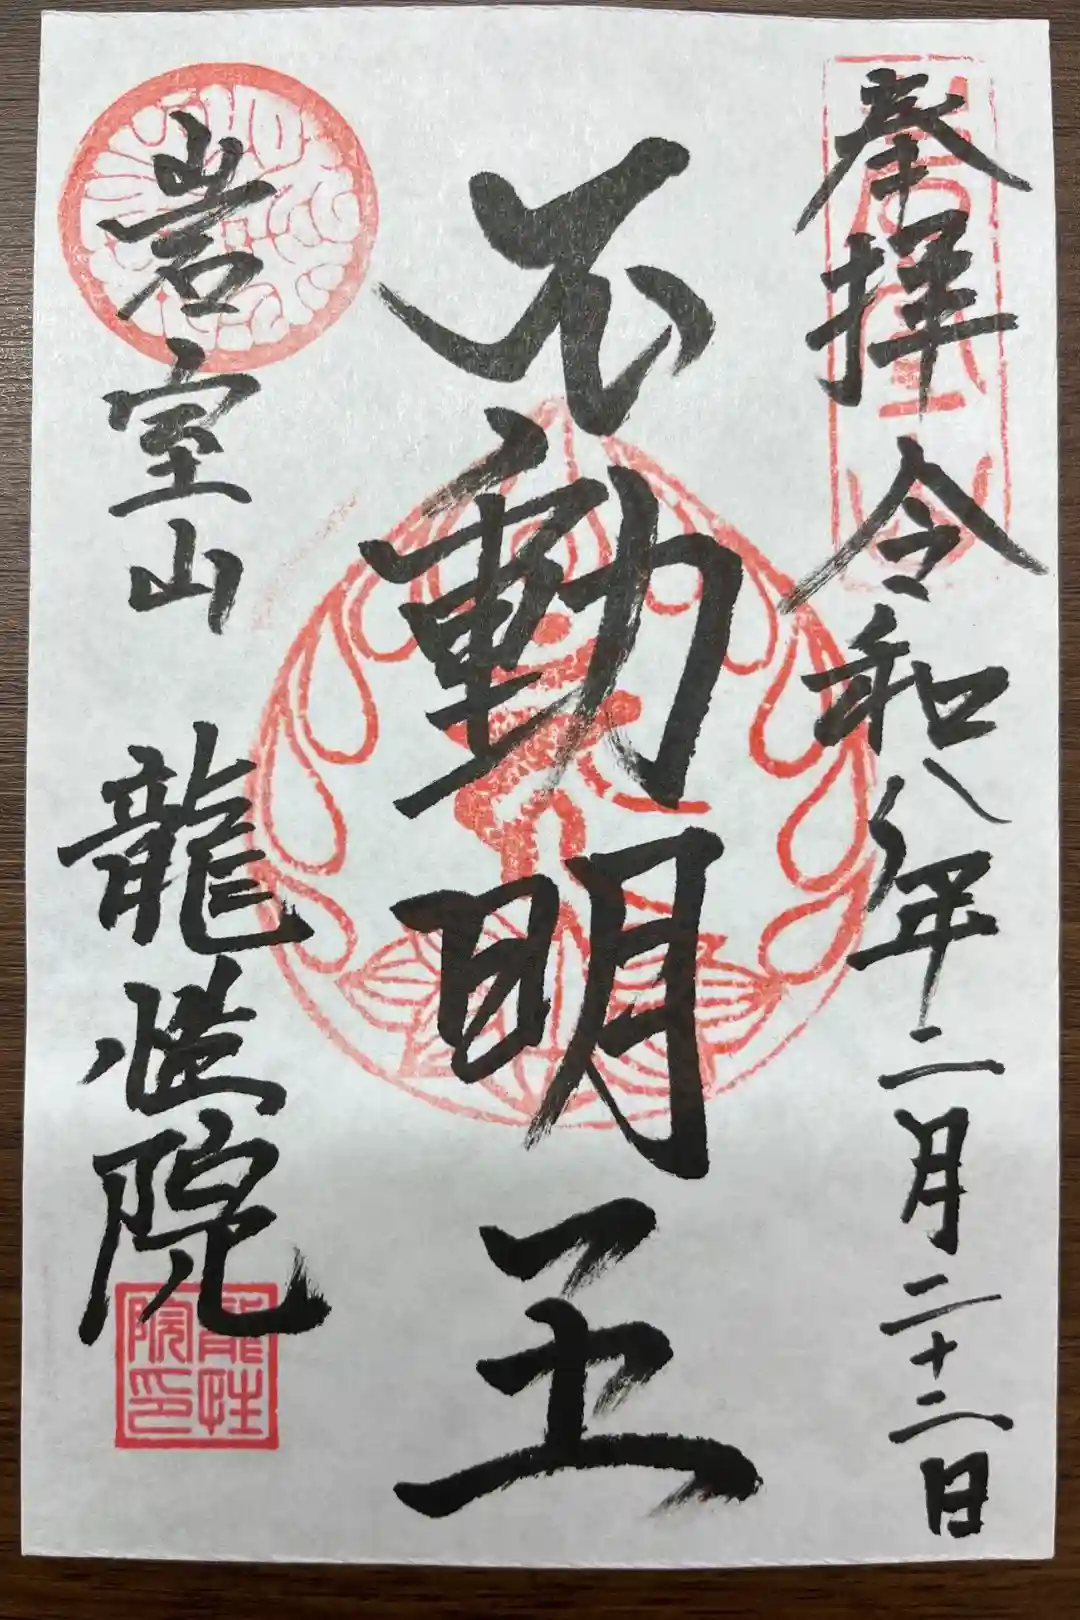 奉拝 令和八年二月二十二日
不動明王
岩室山 龍性院
龍性院印